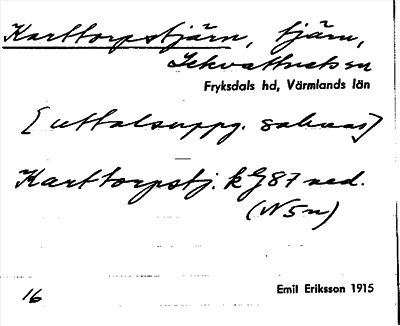 Karttorpstjärn, tjärn,
Lekvattnets sn
Fryksdals hd, Värmlands län
[uttalsuppg. saknas]
Karttorpstj. k G87 ned.
(N5n)
16
Emil Eriksson 1915